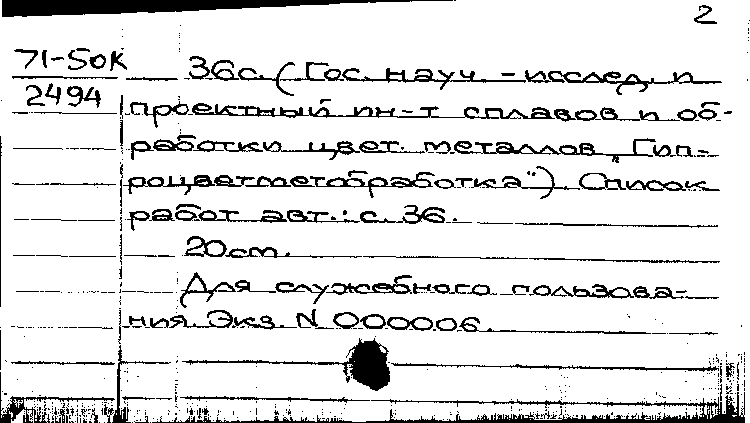 2
71-50К
2494
36с. (Гос. науч.-исслед. и
проектный ин-т сплавов и об-
работки цвет. металлов „Гип-
роцветметобработка"). Список
работ авт.: с. 36.
20см.
Для служебного пользова-
ния. Экз. N 000006.